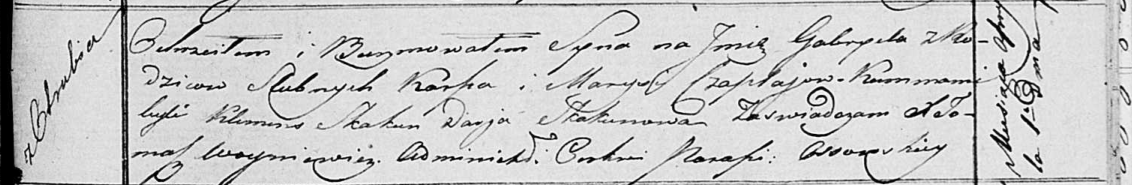 z Otrubia
Ochrzcilem i Bierzmowałem Syna na Jmie Gabryela z Ro-
dzicow Slubnych Karpa i Marysi Czaplajow. Kummami
byli Klemens Skakun Darja Skakunowa Zaswiadczam X To-
masz Woyniewicz. Administ. Cerkwi Parafi: Ossowskiey
Miesiąca
la 1 Dnia